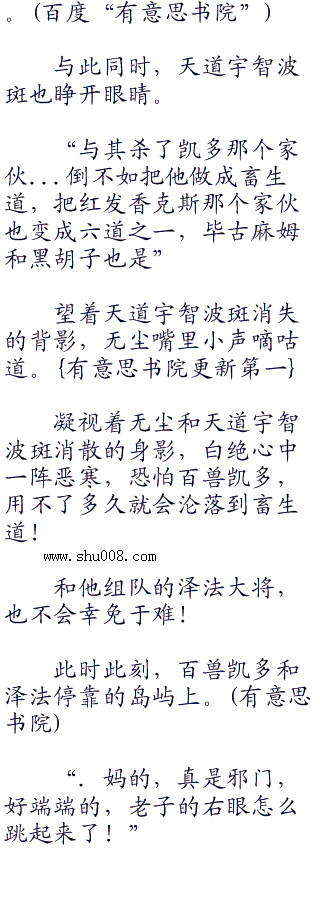 。(百度“有意思书院”)
与此同时，天道宇智波
斑也睁开眼睛。
“与其杀了凯多那个家
伙...倒不如把他做成畜生
道，把红发香克斯那个家伙
也变成六道之一，毕古麻姆
和黑胡子也是”
望着天道宇智波斑消失
的背影，无尘嘴里小声嘀咕
道。{有意思书院更新第一}
凝视着无尘和天道宇智
波斑消散的身影，白绝心中
一阵恶寒，恐怕百兽凯多，
用不了多久就会沦落到畜生
道！
www.shu008.com
和他组队的泽法大将，
也不会幸免于难！
此时此刻，百兽凯多和
泽法停靠的岛屿上。(有意思
书院)
“．妈的，真是邪门，
好端端的，老子的右眼怎么
跳起来了！”